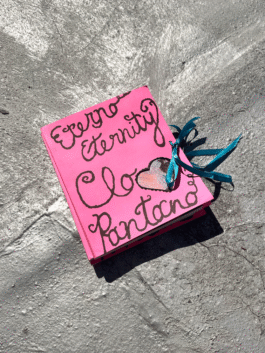 Eterno
Eternity
Clo
Pantano